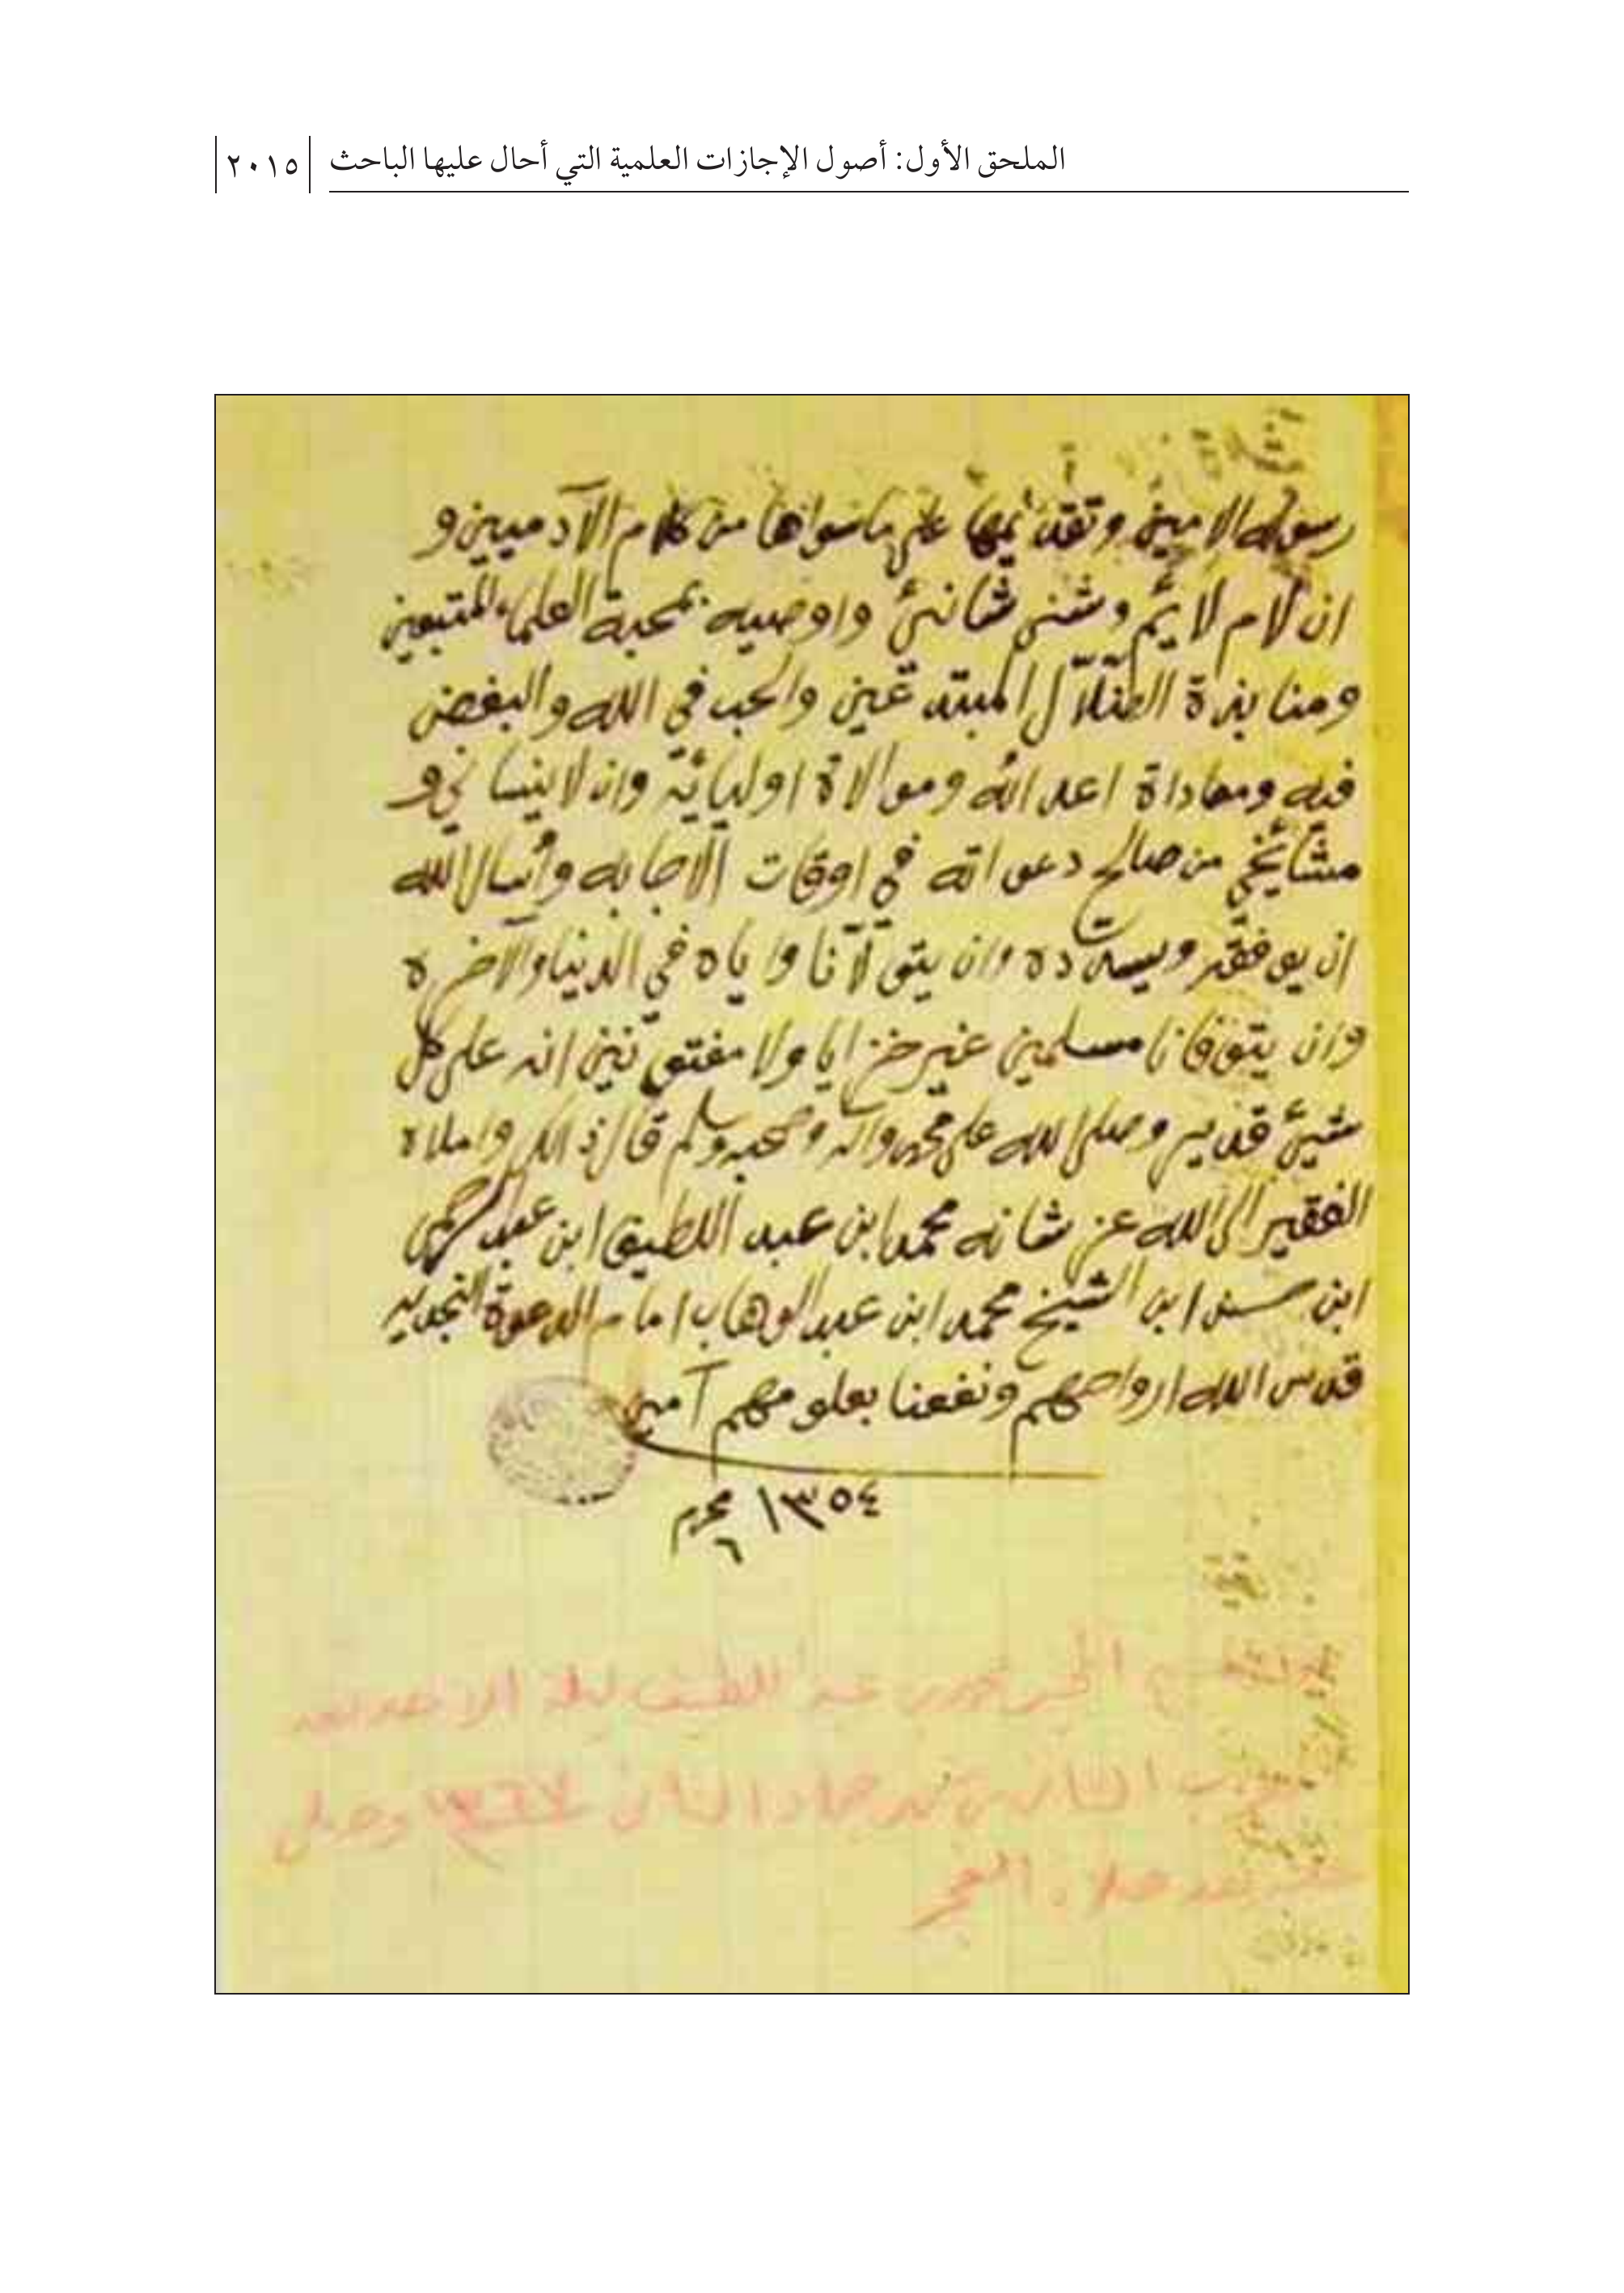 الملحق الأول: أصول الإجازات العلمية التي أحال عليها الباحث ٢٠١٥
رسوله الامين وتقديمها على ما سواها من كلام الآدميين و
ان لام لايم وشنى شانئ واوصيه بمحبة العلماء المتبعين
ومنابذة الضلال المبتدعين والحب في الله والبغض
فيه ومعاداة اعدائه وموالاة اوليائه وان لا ينساني و
مشائخي من صالح دعواته في اوقات الاجابه وأسال الله
ان يوفقه ويسدده وان يتولآنا واياه في الدنيا والآخره
وان يتوفانا مسلمين غير خزايا ولا مفتونين انه على كل
شيئ قدير وصلى الله على محمد وآله وصحبه وسلم قال ذالك واملاه
الفقير الى الله عز شانه محمد ابن عبد اللطيف ابن عبد الرحمن
ابن حسن ابن الشيخ محمد ابن عبد الوهاب امام الدعوة النجديه
قدس الله ارواحهم ونفعنا بعلومهم آمين
١٣٥٤ محرم
٦
محمد بن عبد اللطيف ليلة الاحد بعد
جماد الثاني ١٣٦٧ وصلي
بعد صلاة الفجر